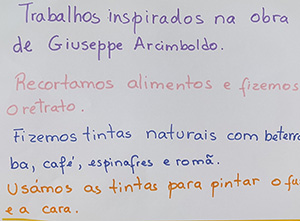 Trabalhos inspirados na obra
de Giuseppe Arcimboldo.
Recortamos alimentos e fizemos
o retrato.
Fizemos tintas naturais com beterra
ba, café, espinafres e romã.
Usámos as tintas para pintar o
e a cara.